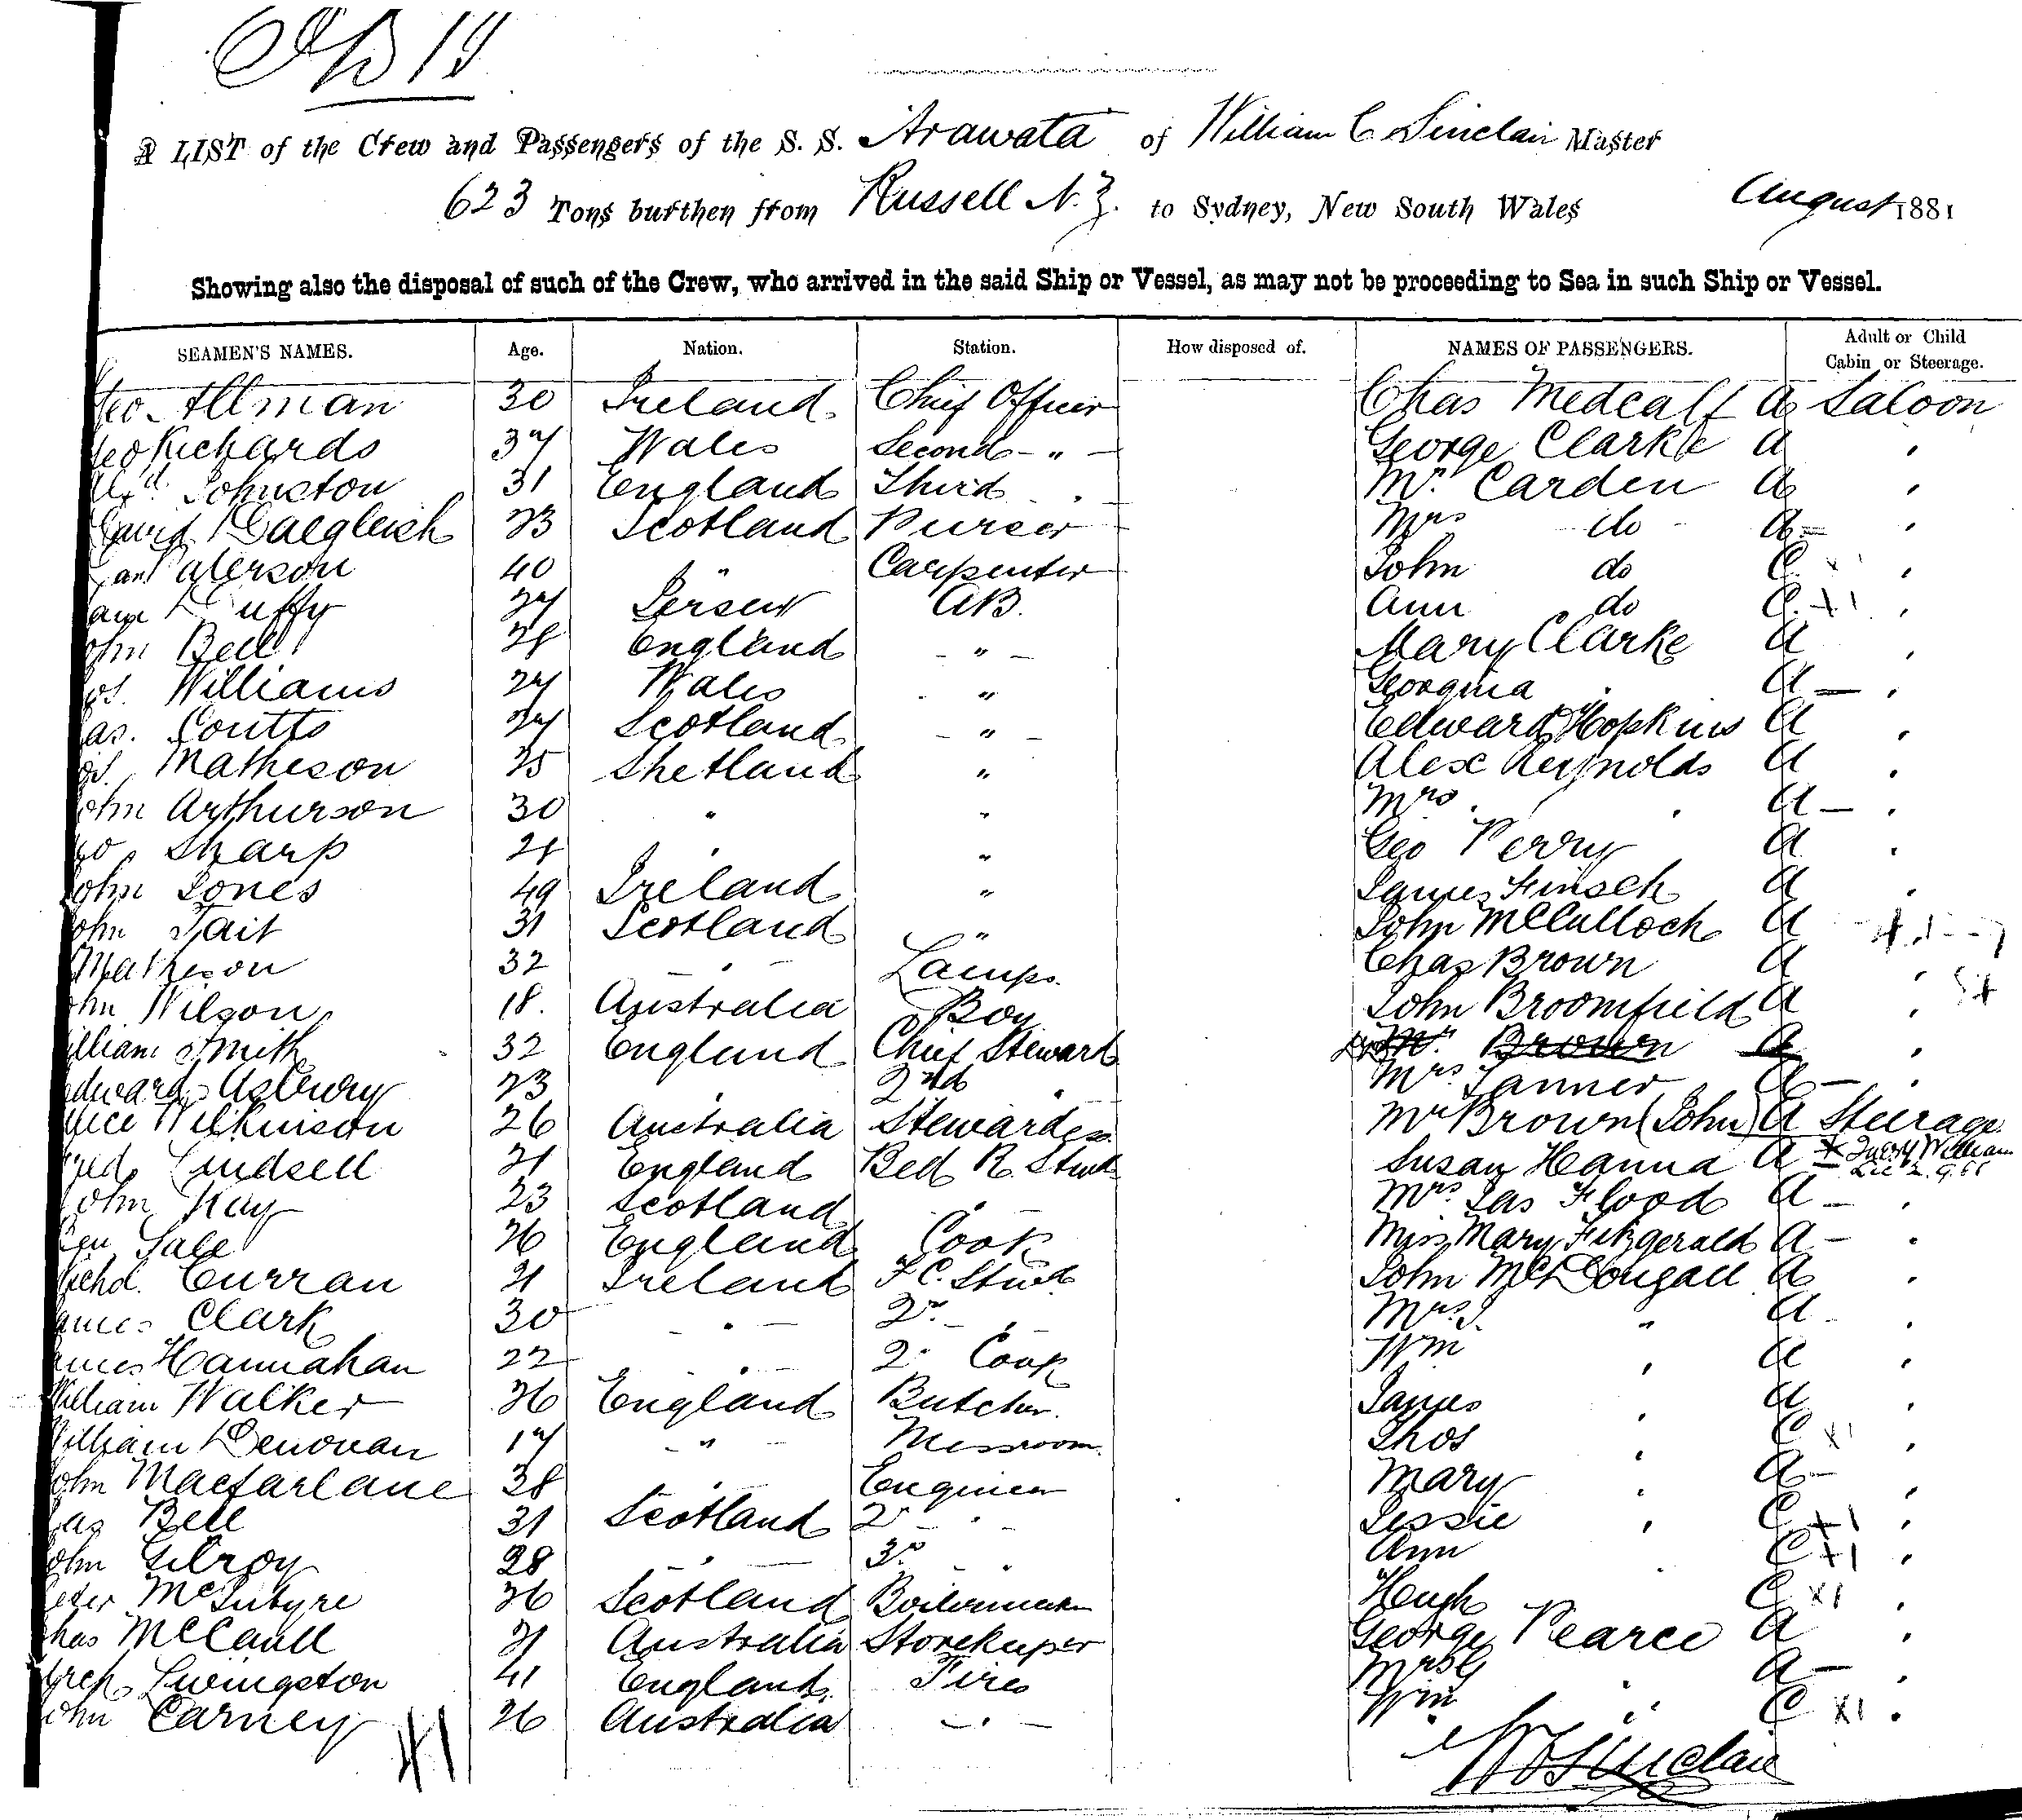 A LIST of the Crew and Passengers of the S. S. Arawata of William C Sinclair Master
623 Tons burthen from Russell N.Z. to Sydney, New South Wales August 1881
Showing also the disposal of such of the Crew, who arrived in the said Ship or Vessel, as may not be proceeding to Sea in such Ship or Vessel.
SEAMEN'S NAMES. Age. Nation. Station. How disposed of. NAMES OF PASSENGERS. Adult or Child Cabin or Steerage.
Geo Allman 30 Ireland Chief Officer Chas Medcalf A Saloon
Geo Richards 37 Wales Second " George Clarke A ,
Johnston 31 England Third Mr. Carden A ,
David Dalgleish 23 Scotland Purser Mrs do A ,
Paterson 40 " Carpenter John do C ,
Duffy 27 Jersey AB. Ann do C. ,
John Bell 28 England " Mary Clarke A ,
Jos. Williams 27 Wales " Georgina A ,
Jas. Coutts 27 Scotland " Edward Hopkins A ,
Jos. Matheson 25 Shetland " Alex Reynolds A ,
John Arthurson 30 " " Mrs. , A ,
Sharp 28 " " Geo Perry A ,
John Jones 49 Ireland " James Finsch A ,
John Tait 31 Scotland " John McCulloch A
Matheson 32 " Lamps. Chas Brown A ,
John Wilson 18. Australia Boy John Broomfield A ,
William Smith 32 England Chief Steward Mr. Brown A ,
Edward Asbury 23 " 2nd " Mrs. Tanner A ,
Alice Wilkinson 26 Australia Stewardess Mr Brown (John) A Steerage
Fred Lindsell 21 England Bed R. Stwd Susan Hanna A William
John Kay 23 Scotland " Mrs. Jas Flood A ,
Ben Sale 26 England Cook Miss Mary Fitzgerald A ,
Richd. Curran 21 Ireland F C. Stwd John McDougall A ,
James Clark 30 " 2nd " Mrs. J. " A ,
James Hannahan 22 " 2nd Cook Wm , A ,
William Walker 26 England Butcher. James , A ,
William Denovan 17 " Messroom. Thos , C ,
John Macfarlane 38 " Engineer Mary , A ,
Jas Bell 31 Scotland 2nd " Jessie , C ,
John Gilroy 28 " 3rd " Ann C ,
Peter McIntyre 26 Scotland Boilermaker Hugh C ,
Chas McCaull 21 Australia Storekeeper George Pearce A ,
Arch Livingston 41 England Fires Mrs G , A ,
John Carney 26 Australia " Wm , C ,
W C Sinclair